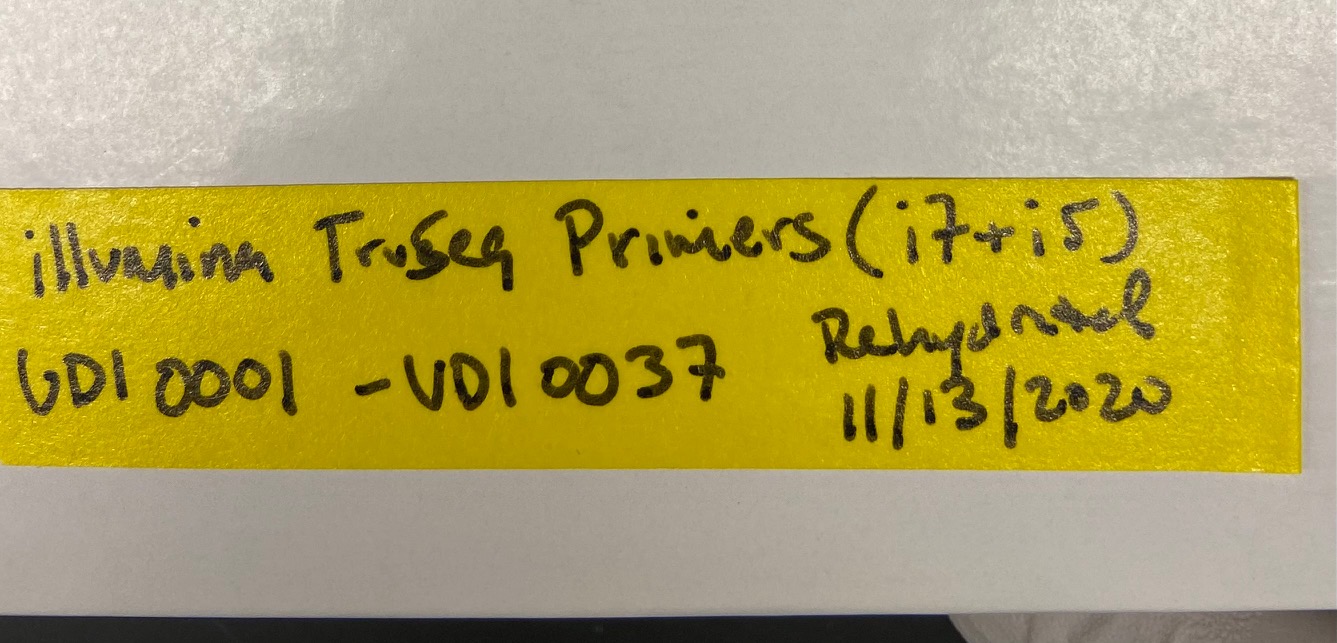 illumina TruSeq Primers (i7+i5)
UDI 0001 - UDI 0037
Rehydrated
11/13/2020